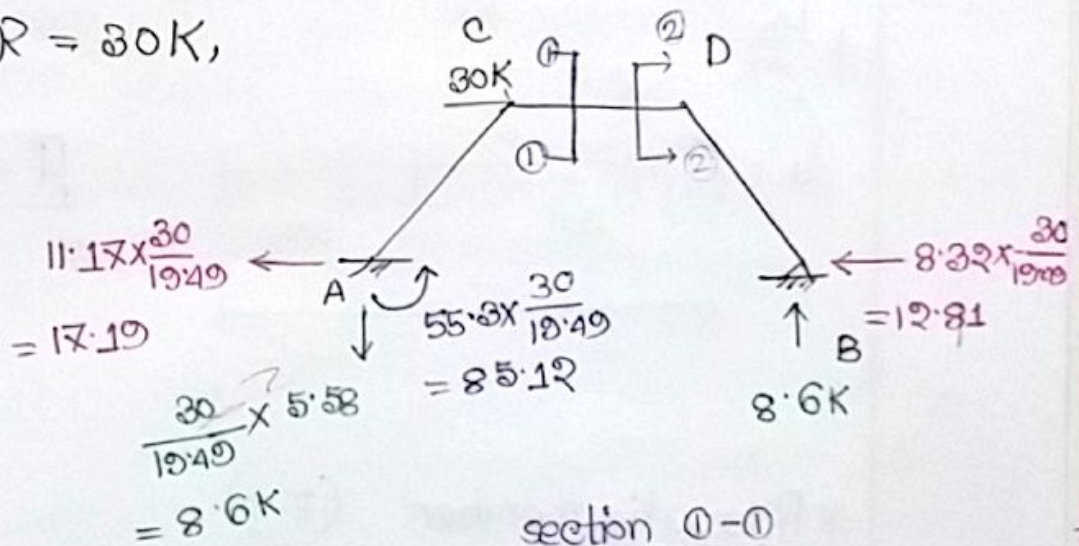 R = 30K,
C
① ② D
30K
① ②
11.17x30/19.49
= 17.19
A
55.3x30/19.49
= 85.12
8.32x30/19.49
=12.81
B
8.6K
30/19.49 x 5.58
= 8.6K
section ①-①